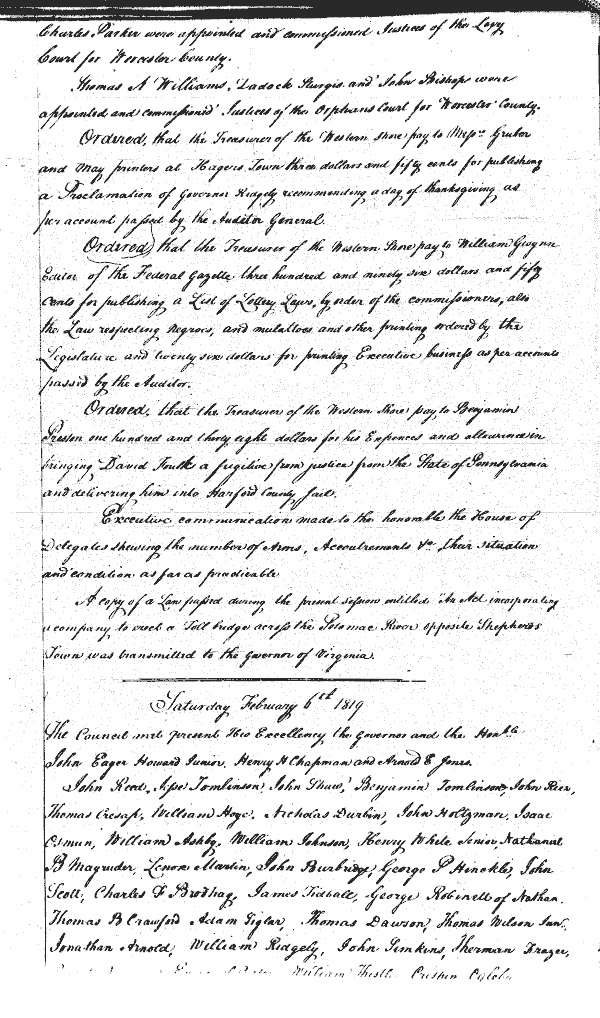 Charles Parker were appointed and commissioned Justices of the Levy
Court for Worcester County.
Thomas N Williams, Zadock Sturgis and John Bishop were
appointed and commissioned Justices of the Orphans Court for Worcester County.
Ordered, that the Treasurer of the Western Shore pay to Messrs Gruber
and May printers at Hagers Town three dollars and fifty cents for publishing
a Proclamation of Governor Ridgely recommending a day of thanksgiving as
per account passed by the Auditor General.
Ordered, that the Treasurer of the Western Shore pay to William Gwynn
Editor of the Federal Gazette three hundred and ninety six dollars and fifty
cents for publishing a List of Lottery Laws, by order of the commissioners, also
the Law respecting Negroes, and mulattoes and other printing ordered by the
Legislature and twenty six dollars for printing Executive business as per accounts
passed by the Auditor.
Ordered, that the Treasurer of the Western Shore pay to Benjamin
Preston one hundred and thirty eight dollars for his Expences and allowance in
bringing David a fugitive from justice from the State of Pennsylvania
and delivering him into Harford County Jail.
Executive communication made to the honorable the House of
Delegates shewing the number of Arms, Accoutrements &c. their situation
and condition as far as practicable
A copy of a Law passed during the present session entitled "An Act incorporating
a company to erect a Toll bridge across the Potomac River opposite Shepherds
Town was transmitted to the Governor of Virginia.
Saturday February 6th 1819
The Council met present His Excellency the Governor and the Honble
John Eager Howard Junior, Henry H Chapman and Arnold E Jones.
John Reed, Jesse Tomlinson, John Shaw, Benjamin Tomlinson, John Rice,
Thomas Cresap, William Hoye, Nicholas Durbin, John Holtzman, Isaac
Osmun, William Ashby, William Johnson, Henry White Senior Nathaniel
B Magruder, Lenox Martin, John Burbridge, George P Hinckle, John
Scott, Charles F Brodhag, James Tidball, George Robinett of Nathan,
Thomas B Crawford Adam Sigler, Thomas Dawson, Thomas Wilson Junr.
Jonathan Arnold, William Ridgely, John Simkins, Sherman Frazer,
William Thistle